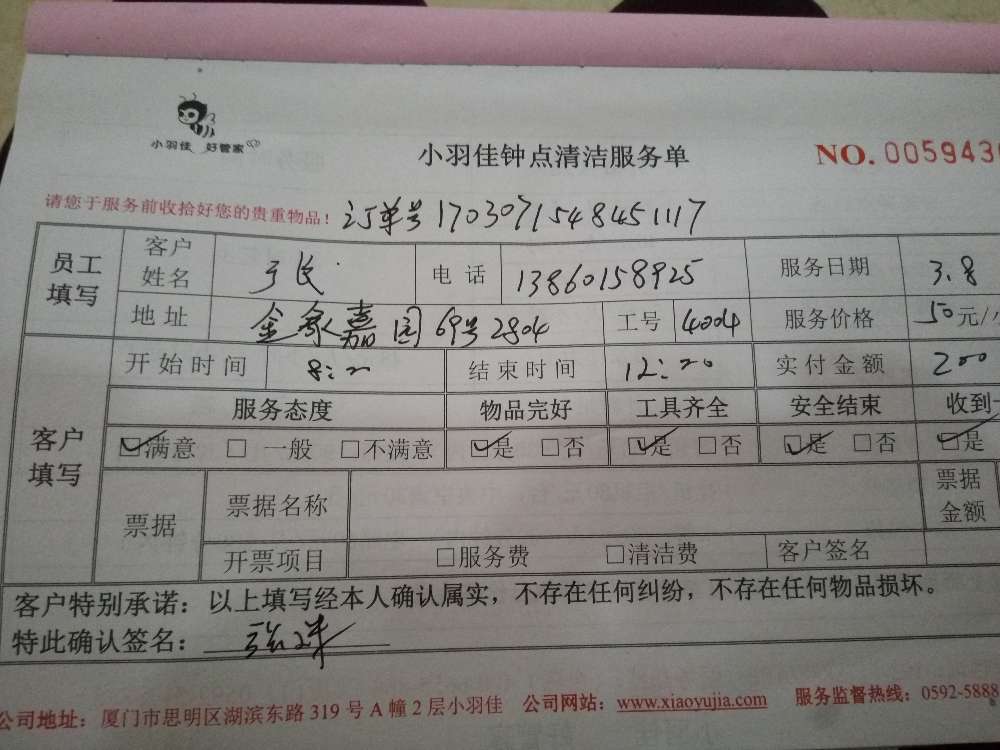 小羽佳 好管家
小羽佳钟点清洁服务单
NO. 0059430
请您于服务前收拾好您的贵重物品! 订单号 1703071548451117
员工填写 客户姓名 张 电话 13860158925 服务日期 3.8
地址 金象嘉园69号2804 工号 4004 服务价格 50元/
客户填写 开始时间 8:20 结束时间 12:20 实付金额 200
服务态度 物品完好 工具齐全 安全结束 收到
☑满意 □一般 □不满意 ☑是 □否 ☑是 □否 ☑是 □否 ☑是
票据 票据名称 票据金额
开票项目 □服务费 □清洁费 客户签名
客户特别承诺：以上填写经本人确认属实，不存在任何纠纷，不存在任何物品损坏。
特此确认签名：
公司地址：厦门市思明区湖滨东路 319 号 A 幢 2 层小羽佳 公司网站：www.xiaoyujia.com 服务监督热线：0592-5888